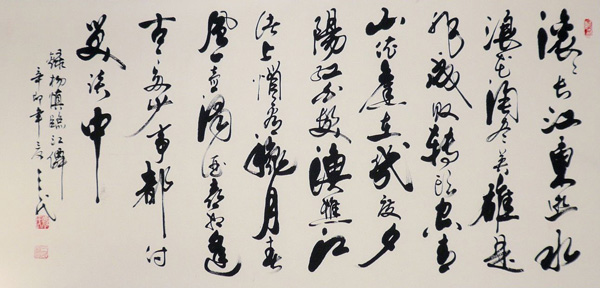 滚々长江東逝水
浪花淘尽英雄是
非成敗转頭空青
山依舊在幾度夕
陽紅白髮漁樵江
渚上慣看龝月春
風一壺濁酒喜相逢
古今多少事都付
笑谈中
録楊慎臨江僊
辛卯年